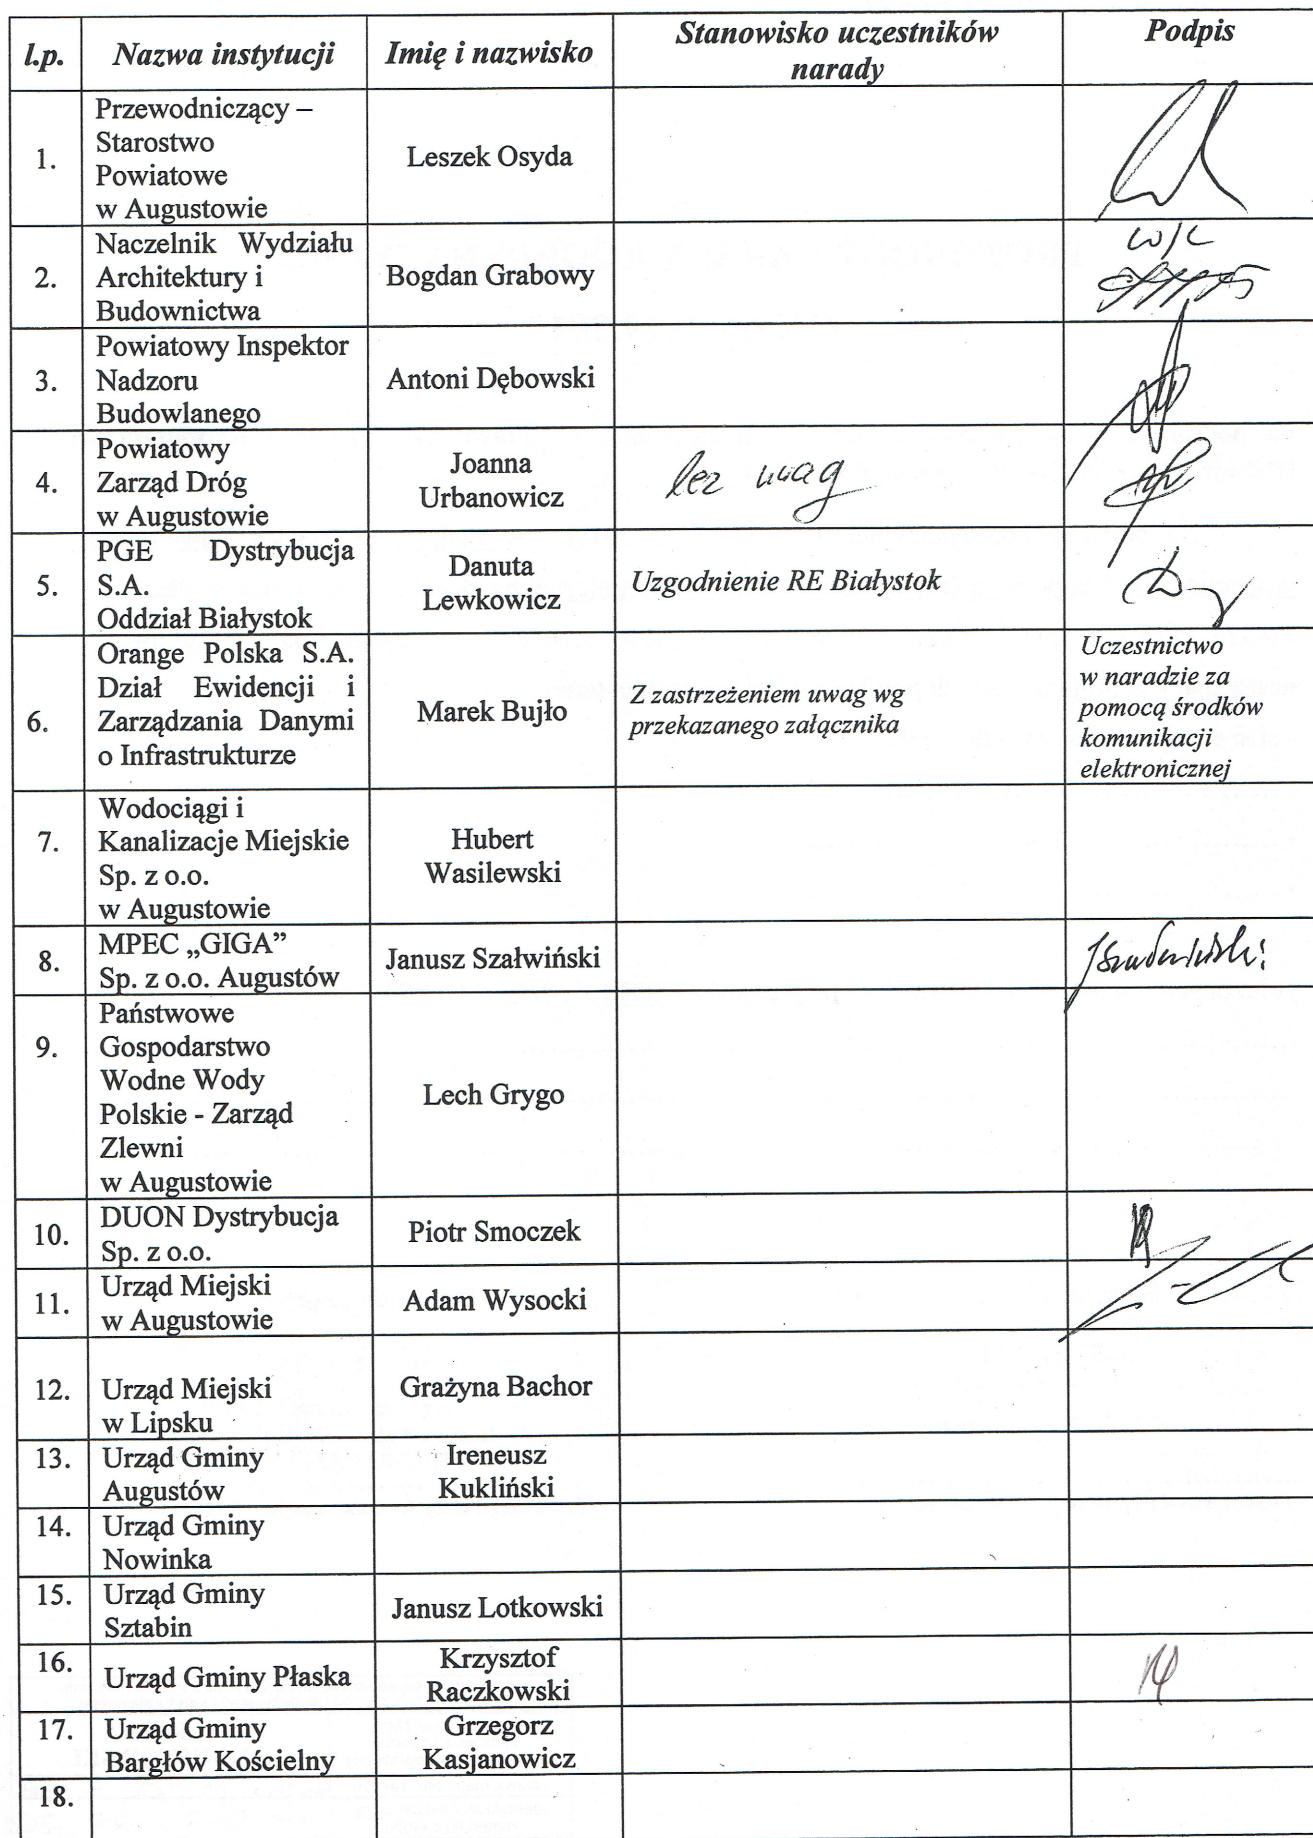 l.p. Nazwa instytucji Imię i nazwisko Stanowisko uczestników narady Podpis
1. Przewodniczący –
Starostwo
Powiatowe
w Augustowie
Leszek Osyda
2. Naczelnik Wydziału
Architektury i
Budownictwa
Bogdan Grabowy
3. Powiatowy Inspektor
Nadzoru
Budowlanego
Antoni Dębowski
4. Powiatowy
Zarząd Dróg
w Augustowie
Joanna
Urbanowicz
bez uwag
5. PGE Dystrybucja
S.A.
Oddział Białystok
Danuta
Lewkowicz
Uzgodnienie RE Białystok
6. Orange Polska S.A.
Dział Ewidencji i
Zarządzania Danymi
o Infrastrukturze
Marek Bujło
Z zastrzeżeniem uwag wg
przekazanego załącznika
Uczestnictwo
w naradzie za
pomocą środków
komunikacji
elektronicznej
7. Wodociągi i
Kanalizacje Miejskie
Sp. z o.o.
w Augustowie
Hubert
Wasilewski
8. MPEC „GIGA”
Sp. z o.o. Augustów
Janusz Szałwiński
9. Państwowe
Gospodarstwo
Wodne Wody
Polskie - Zarząd
Zlewni
w Augustowie
Lech Grygo
10. DUON Dystrybucja
Sp. z o.o.
Piotr Smoczek
11. Urząd Miejski
w Augustowie
Adam Wysocki
12. Urząd Miejski
w Lipsku
Grażyna Bachor
13. Urząd Gminy
Augustów
Ireneusz
Kukliński
14. Urząd Gminy
Nowinka
15. Urząd Gminy
Sztabin
Janusz Lotkowski
16. Urząd Gminy Płaska
Krzysztof
Raczkowski
17. Urząd Gminy
Bargłów Kościelny
Grzegorz
Kasjanowicz
18.